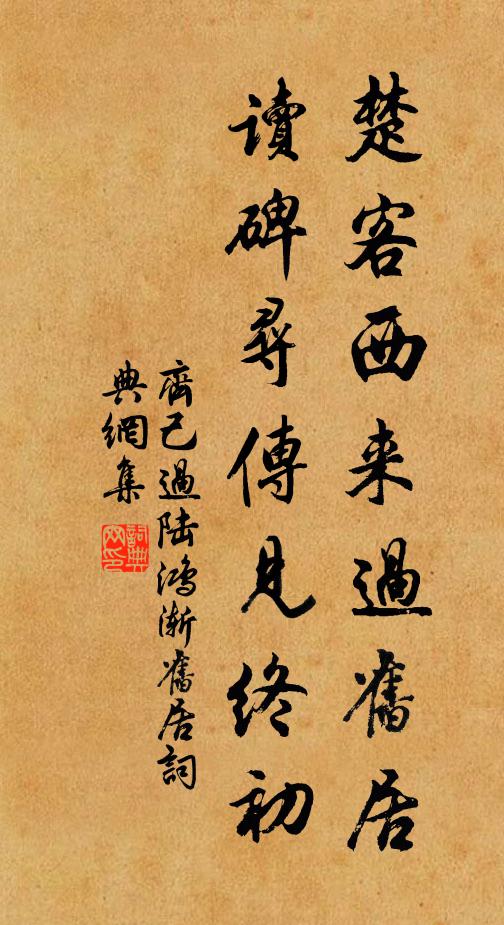 楚客西来過舊居
讀碑尋傳見終初
齊己過陸鴻漸舊居詞
典網集
詞典网印